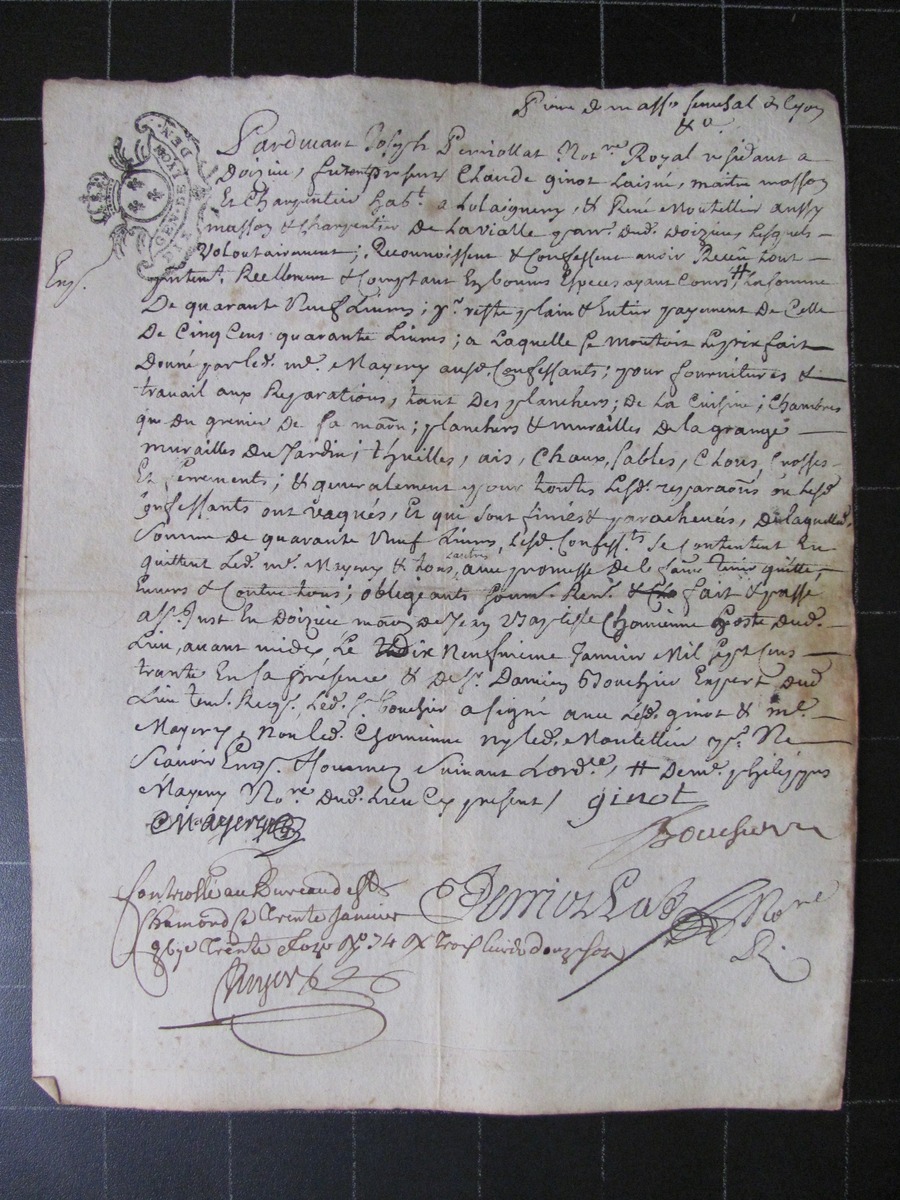 senechal de Lyon
&a.
Pardevant Joseph Perriollat Not.re Royal residant a
Doizieu, furent presents Claude ginot Laisné, maitre masson
Et Charpentier hab.t a & René Montellier aussy
masson & charpentier de Lavialle par. dud. Doizieu Lesquels
GENERALITE DE LYON DEN.
Volontairement; Reconnoissent & Confessent avoir Receu tout
Enr.
presentem.t Reellement & Comptant En bonnes Especes ayant Cours # La somme
De quarante Neuf Livres; p.r reste plain & Entier payement de Celle
De Cinq Cens quarante Livres; a Laquelle se montoit Leprix fait
Donné par led. m.e Mayery ausd. Confessants; pour fournitures &
travail aux Reparations, tant Des planchers; de la Cuisine; Chambres
que du grenier de sa maõn; planchers & murailles de la grange
murailles du Jardin; thuilles, ais, Chaux, sables, Clous, Crosses
Et ferrements; & generalement pour toutes Lesd. reparaõns ou Lesd.
Confessants ont vaqués, Et qui sont finies & parachevées, de laquelle
somme de quarante Neuf Livres, Lesd. Confess.ts se contentent En
quittent Led. m.e Mayery & tous autres avec promesse de le faire tenir quitte,
Envers & Contre tous; obligeants soum. Ren. fait & passé
a S.t Just En Doizieu maõn de Jean Baptiste Chomienne hoste dud.
Lieu, avant midy Le dix Neufvieme Janvier Mil sept Cens
trante En la presence & de S.r Damien Bouchier Expert dud
Lieu tem. Req.s, Led. S.r bouchier a signé avec Led. ginot & m.e
Mayery, Non led. Chomienne ny led. Montellier p.r Ne
Scavoir Enq.s & sommez suivant Lord.ce, # de m.e philippes
Mayery No.re dud. Lieu Cy present / ginot
Mayery
Bouchier
Controllé au Bureau de St
Chamond le Trente Janvier
Trente
Perriollat No.re
R.